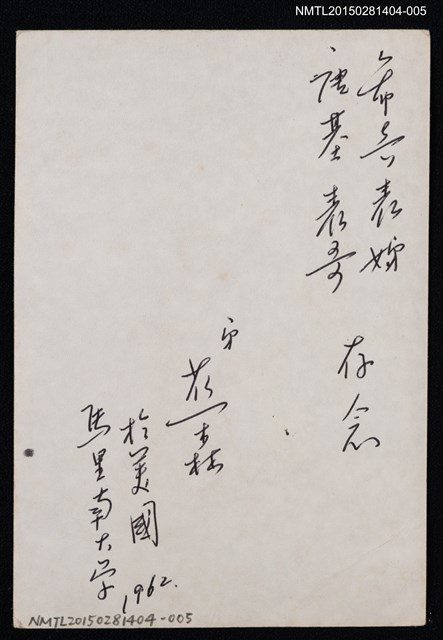 NMTL20150281404-005
表嫂
基表哥
存念
弟
於美國
馬里南大学
1962.
NMTL20150281404-005